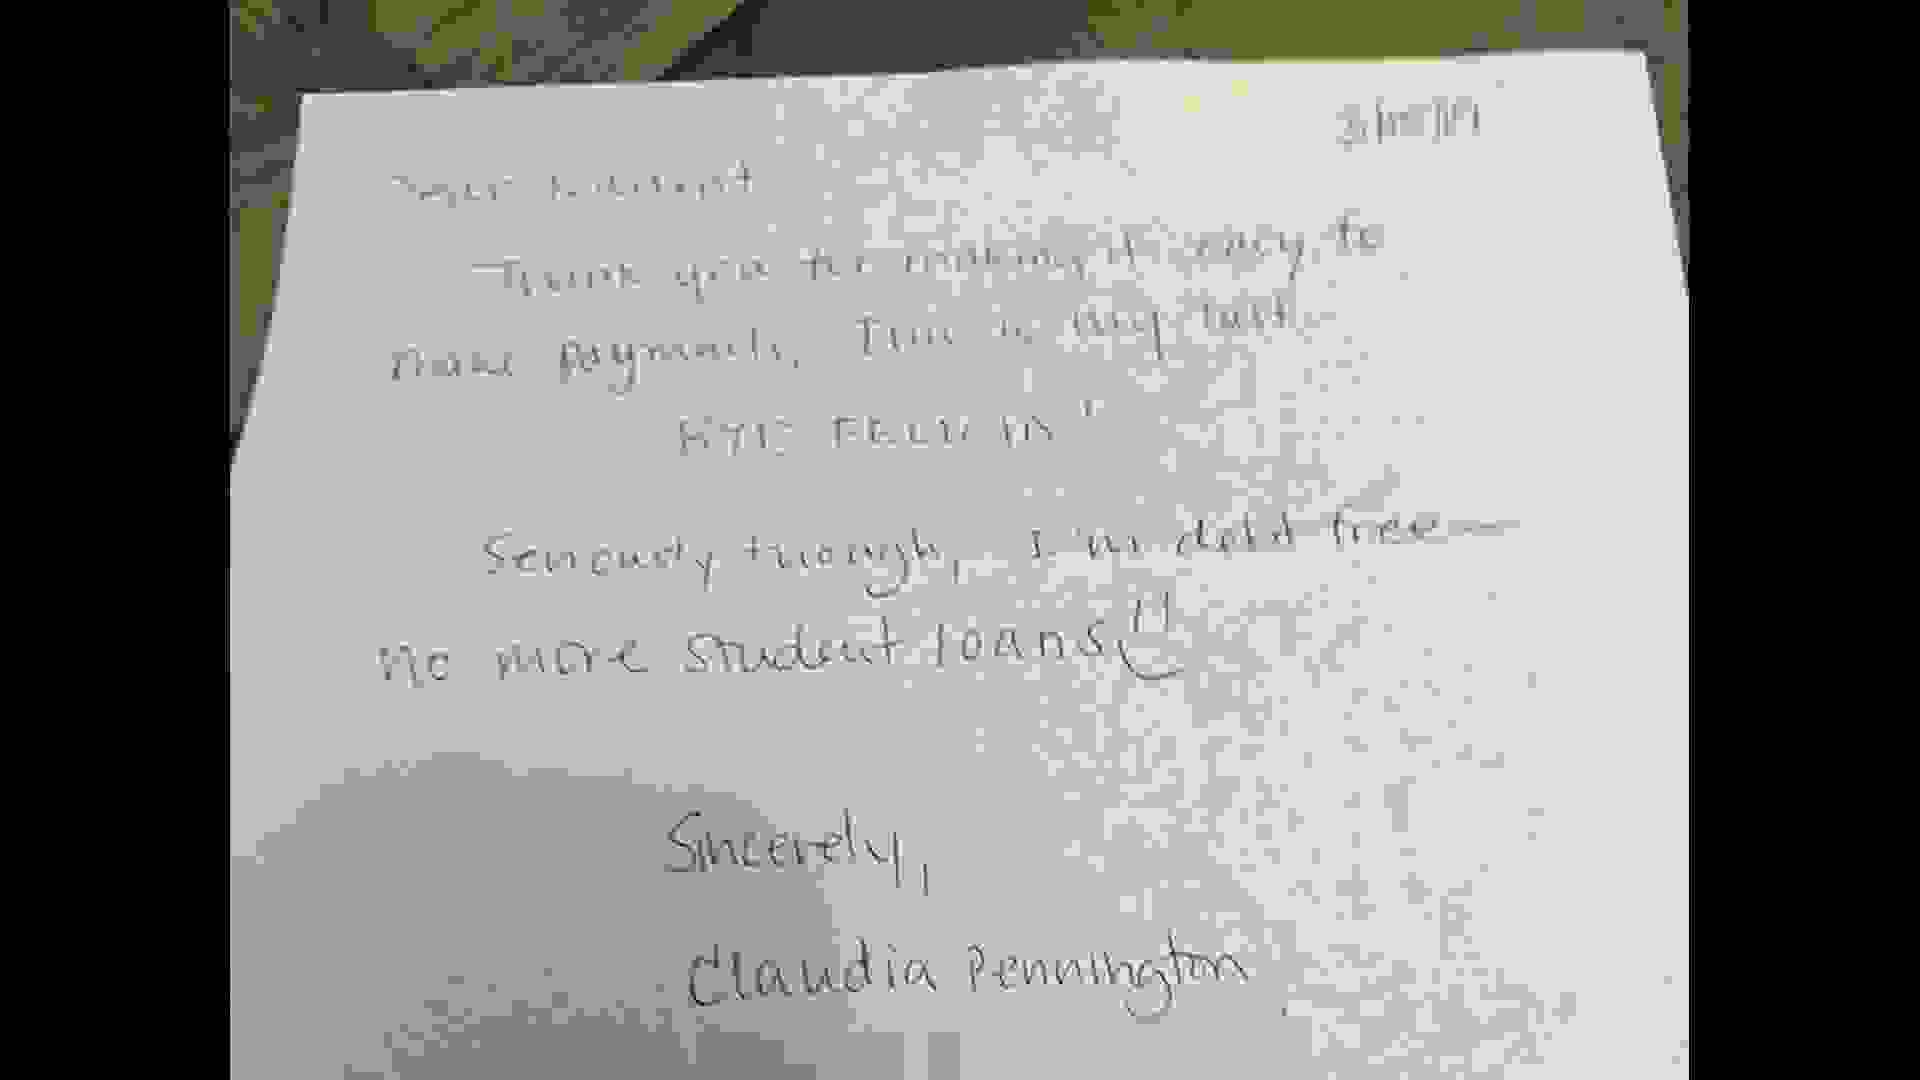 Thank you for making it easy to
make payments, This is my last
BYE FELICIA!
Seriously though, I'm debt free—
no more student loans
Sincerely,
Claudia Pennington